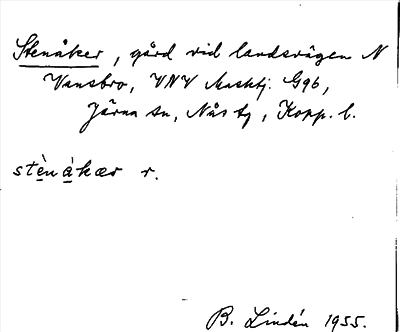 Stenåker, gård vid landsvägen N
Vansbro, VNV Masktj. G96,
Järna sn, Nås tg, Kopp. l.
stè̱nà̱kær r.
B. Lindén 1955.